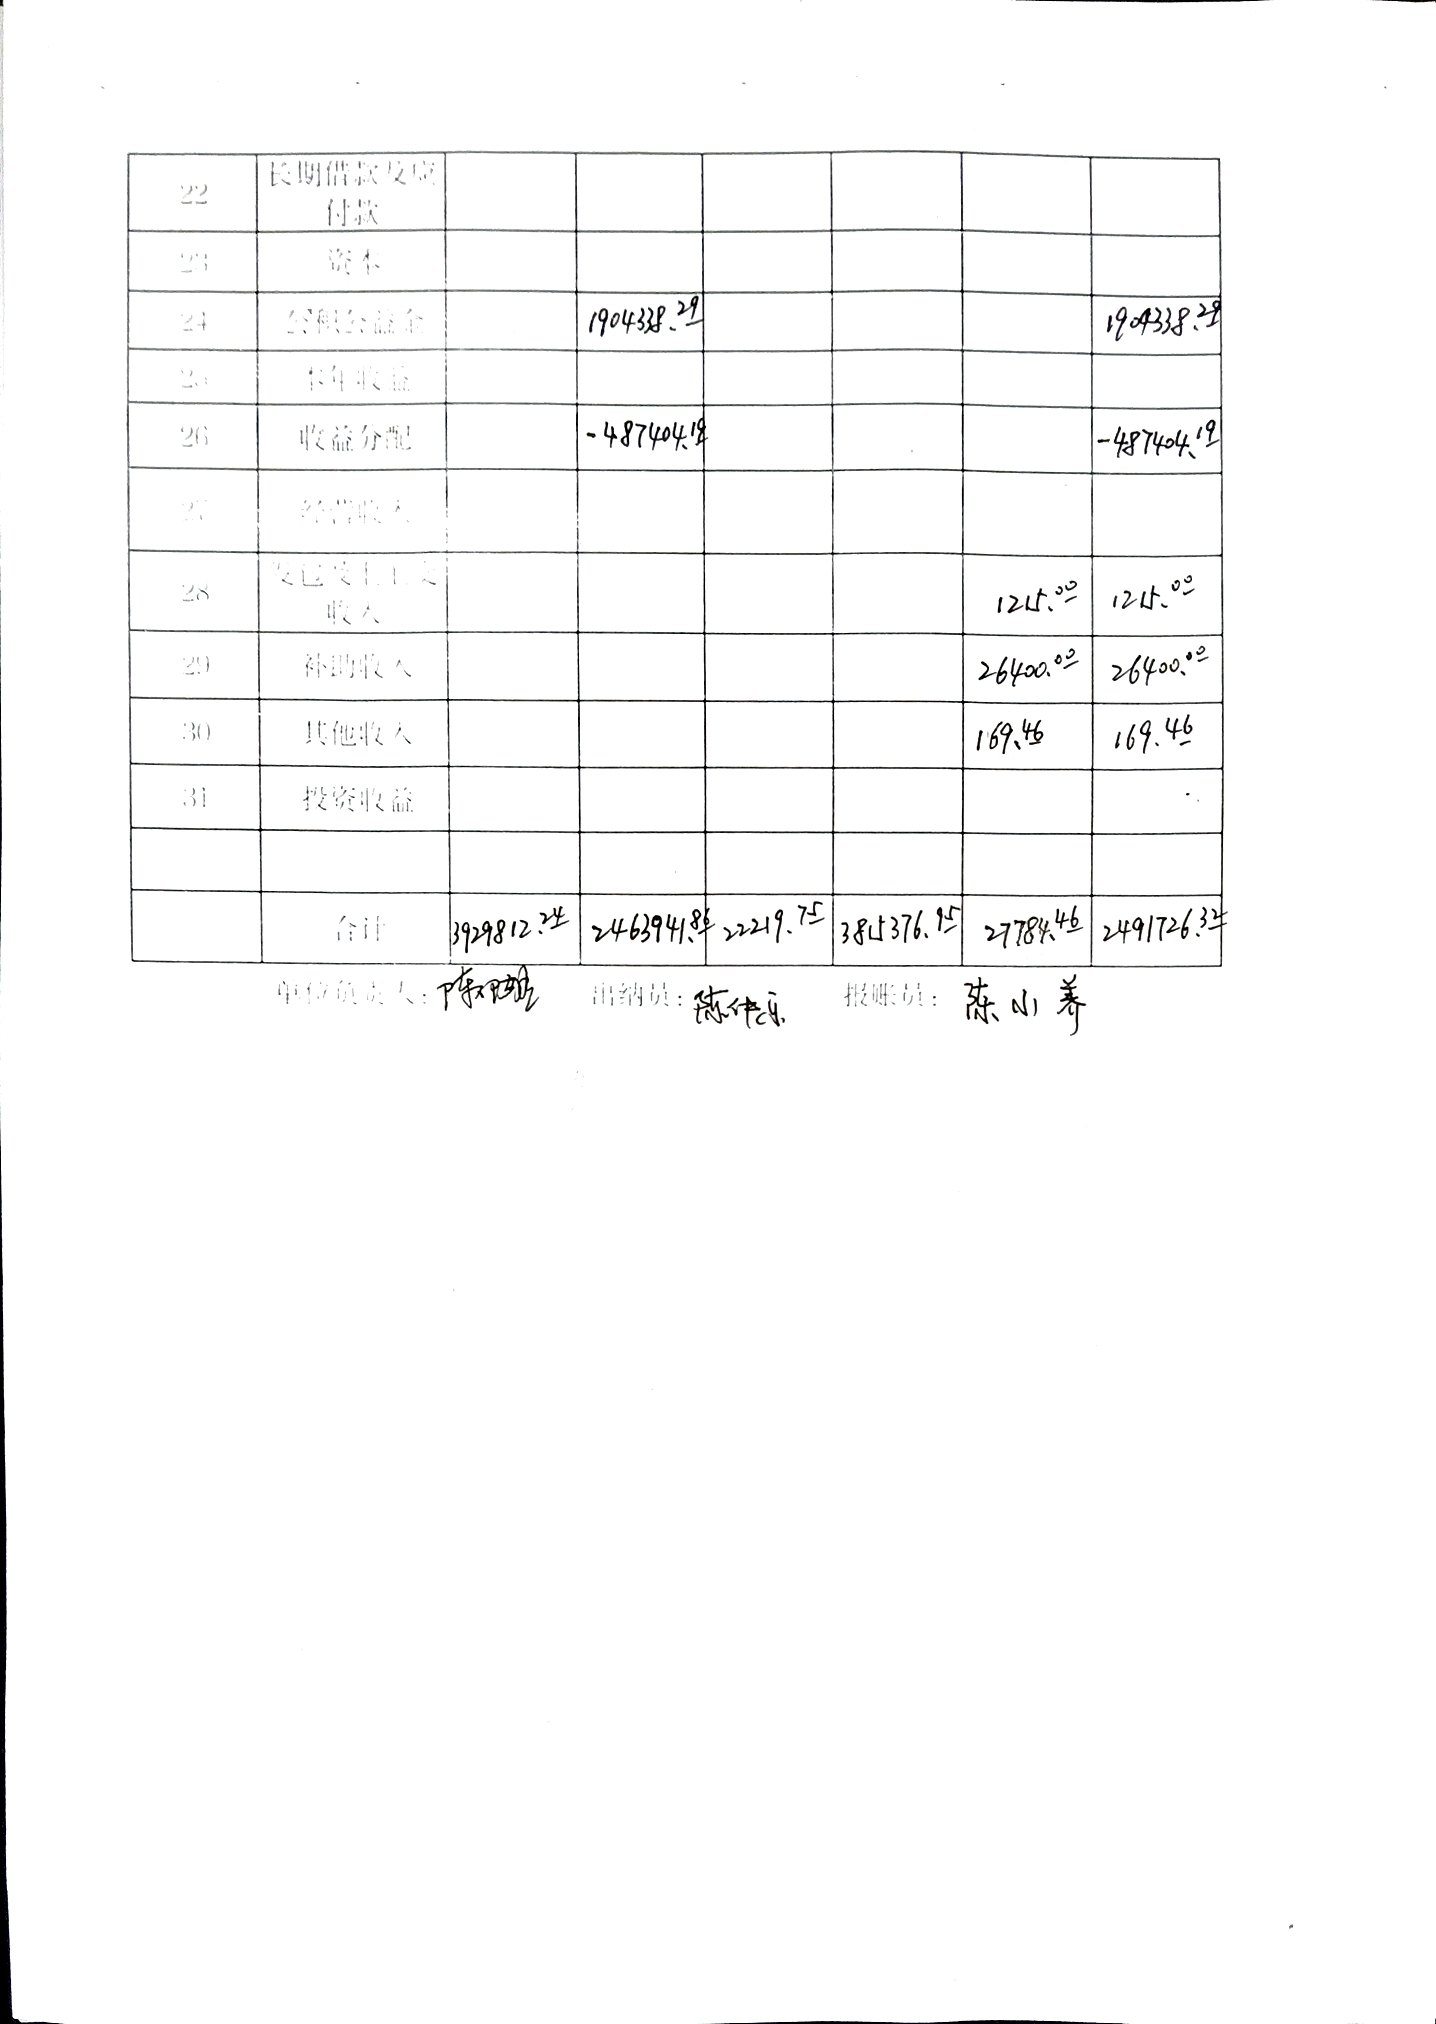 22 长期借款及应
付款
23 资本
24 公积公益金 1904338.29 1904338.29
25 本年收益
26 收益分配 -487404.19 -487404.19
27 经营收入
28 发包及上交
收入 1215.00 1215.00
29 补助收入 26400.00 26400.00
30 其他收入 169.46 169.46
31 投资收益
合计 3929812.24 2463941.86 22219.75 3815376.95 27784.46 2491726.32
单位负责人: 陈 出纳员: 陈 报账员: 陈小养